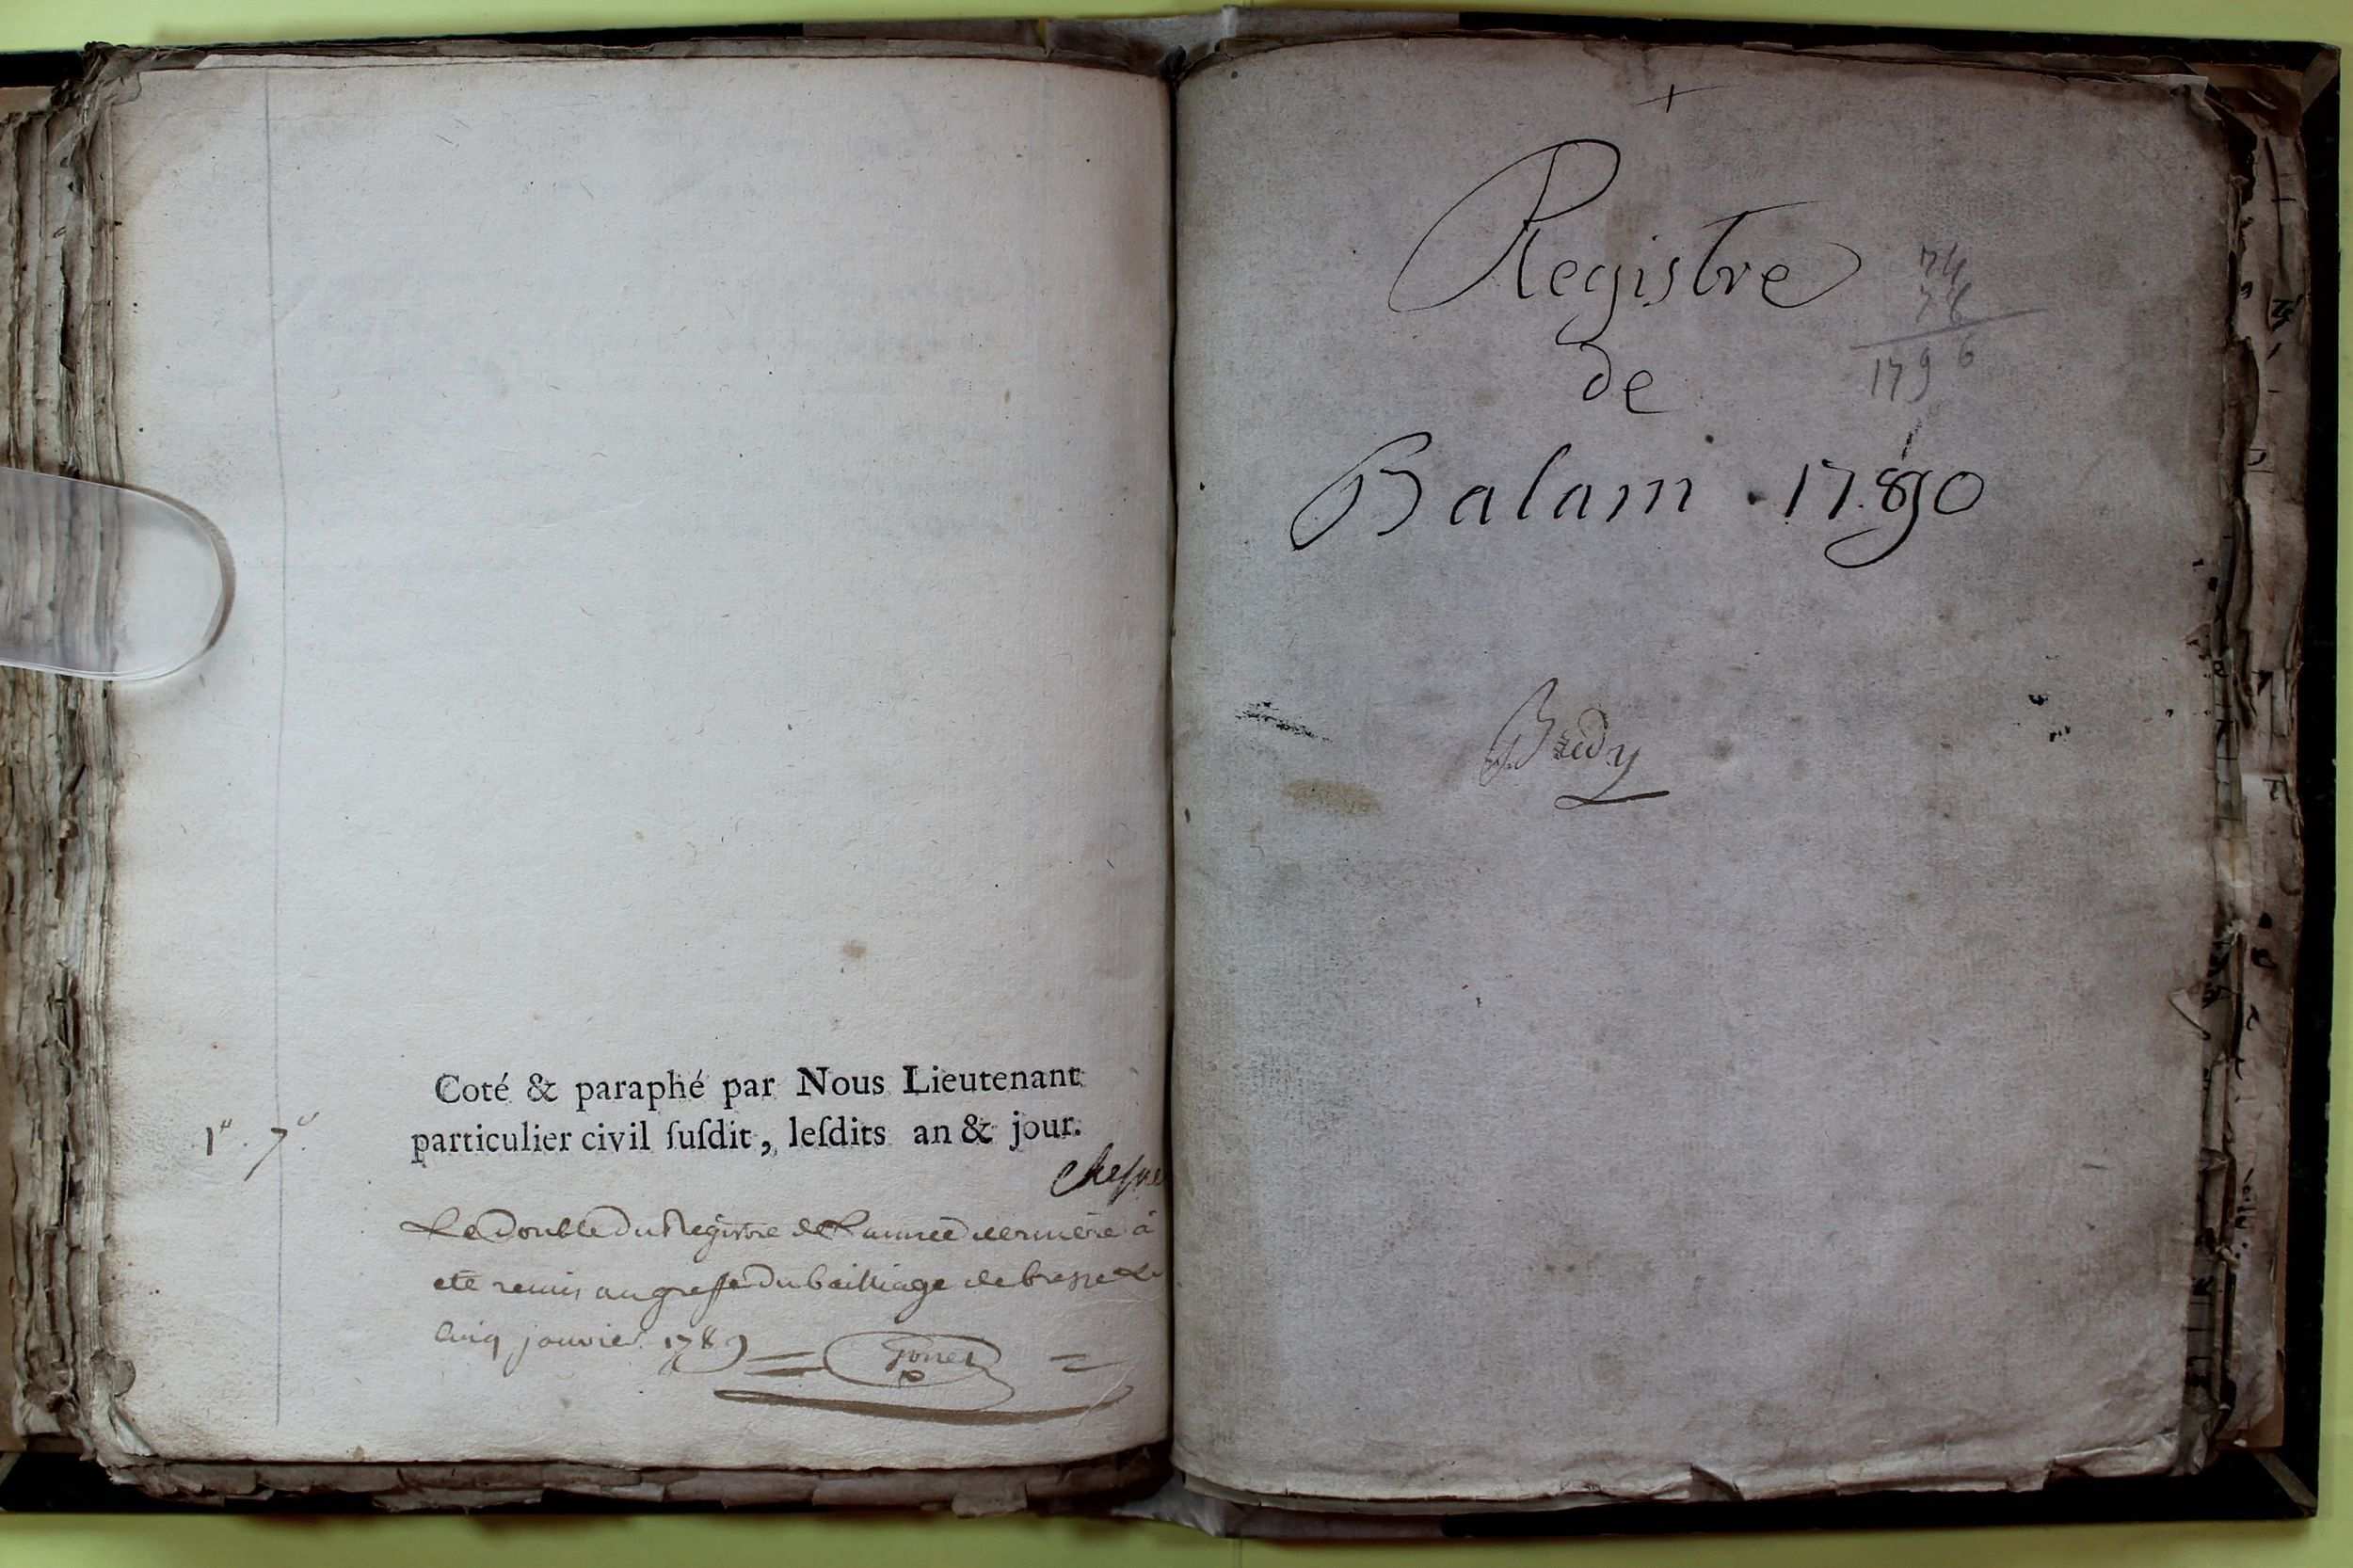 Coté & paraphé par Nous Lieutenant
particulier civil ſuſdit, leſdits an & jour.
1" . 7"
Le Double Du Registre de L'année derniere à
eté remis au greffe Du bailliage de bresse Le
Cinq janvier 1789
+
Registre
de
Balam . 1790
74
1796